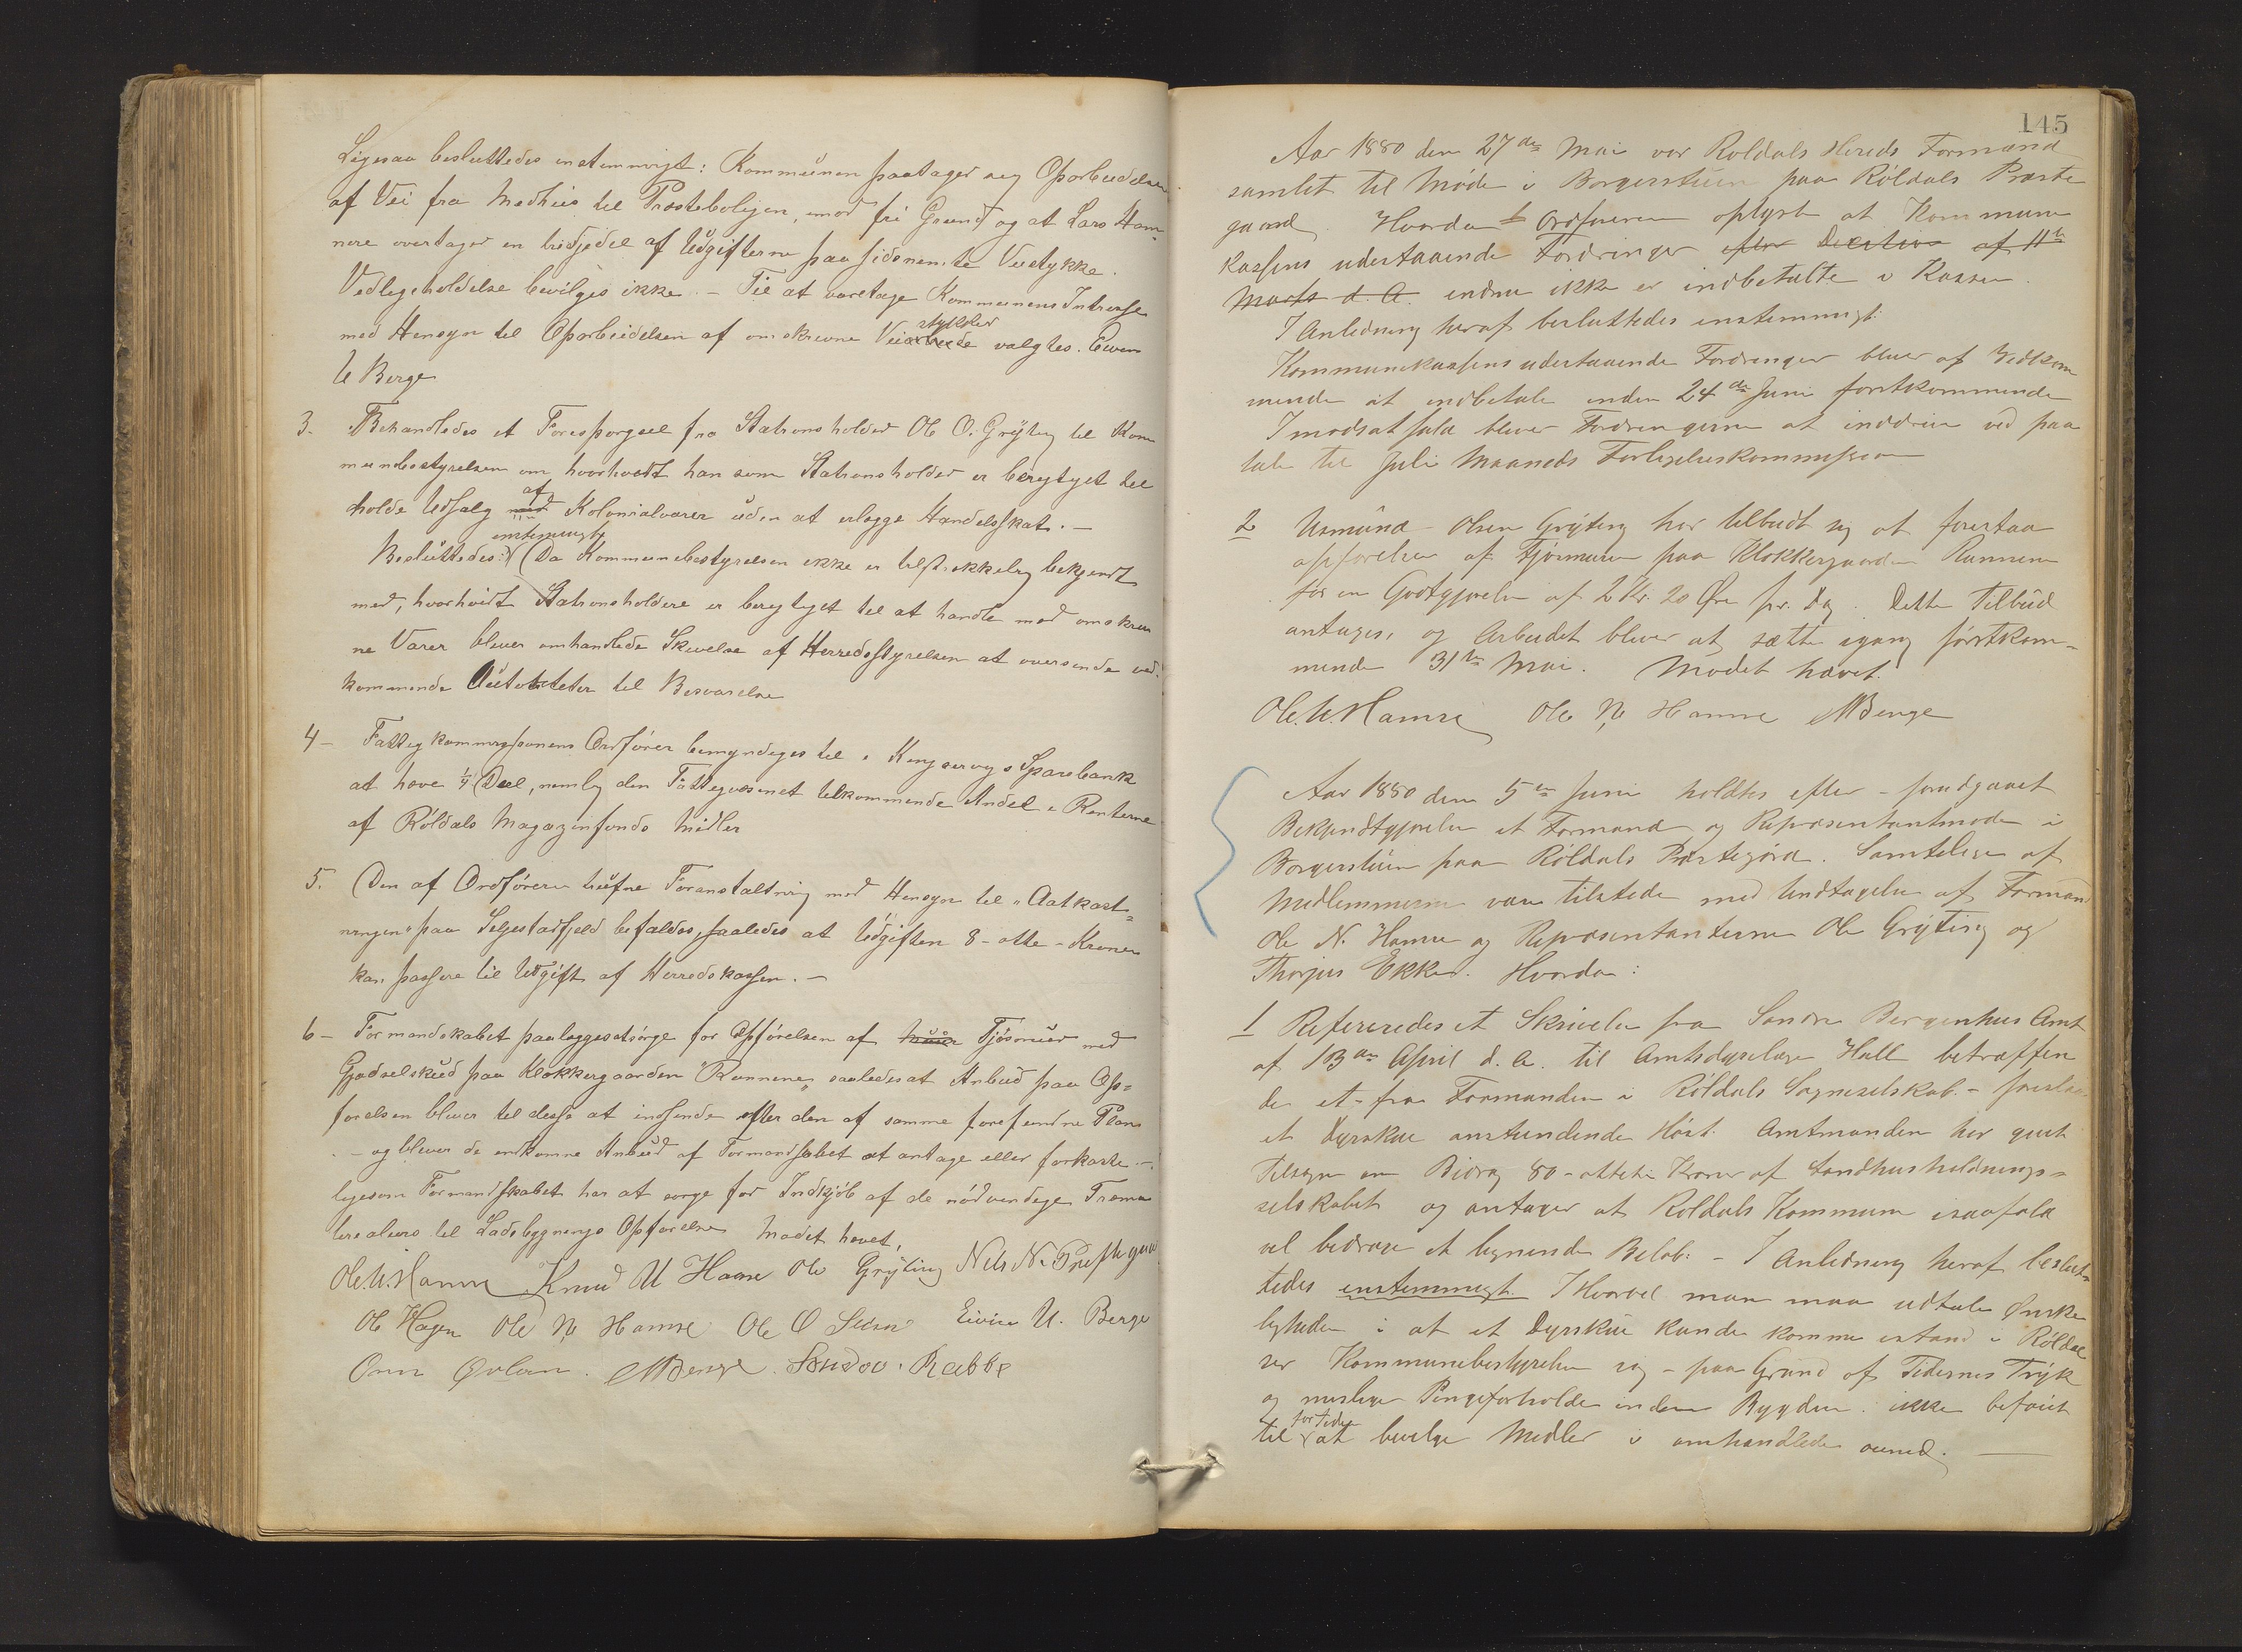 Ligesaa besluttedes enstemmigt: Kommunen paatager sig Oparbeidelsen
af Vei fra Medhus til Præsteboligen, imod fri Grund og at Lars Ham-
nere overtager en tridjedel af Udgifterne paa sidsnemte Veistykke.
Vedligeholdelse bevilges ikke. – Til at varetage Kommunens Intresse
med Hensyn til Oparbeidelsen af omskrevne Vei stykker valgtes Eivin
U Berge
3. Behandledes et Forespørgsel fra Stationsholder Ole O. Grýting til Kom
munebestyrelsen om hvorhvidt han som Stationsholder er berettyget til
holde Udsalg af Kolonialvarer uden at erlægge Handelsskat. –
Besluttedes: enstemmigt (Da Kommunebestyrelsen ikke er tilstrækkelig bekjendt
med, hvorhvidt Stationsholdere er berettyget til at handle med omskrev
ne Varer bliver omhandlede Skrivelse af Herredsstyrelsen at oversende ved-
kommende Autoriteter til Besvarelse
4 – Fattigkommissionens Ordfører bemyndiges til i Kingservigs Sparebank
at hæve 1/4 Deel, nemlig den Fattigvæsenet tilkommende Andel i Renterne
af Röldals Magazinfonds Midler
5. Den af Ordføreren trufne Foranstaltning med Hensyn til "Aatkast-
ningen" paa Seljestadfjeld befaldes, saaledes at Udgiften 8 – otte – Kroner
kan passere til Udgift af Herredskassen. –
6 – Formandskabet paalægges at sørge for Opførelsen af Fjösmuer med
Gjødselskud paa Klokkergaarden "Runnene" saaledes at Anbud paa Op-
førelsen bliver til desse at indsende efter den af samme forefundne Plan
– og bliver de indkomne Anbud af Formandskabet at antage eller forkaste. –
ligesom Formandskabet har at sørge for Indkjöb af de nödvendige Træma
terialiers til Ladebygnings Opførelse Mødet hævet.
Ole. U. Hamre Knud U Hamre Ole Grýting Nils N. Prestegaar
Ole Hagen Ole N. Hamre Ole O Eivin U. Berge
MBerge. Sondov. Rabbe
145
Aar 1880 den 27de Mai var Roldals Hereds Formænd
samlet til Møde i Borgerstuen paa Röldals Præste
gaard. Hvorda Ordføreren oplyste at Kommune
Kassens udestaaende Fordringer efter af 11te
Marts d. A. endnu ikke er indbetalte i Kassen.
I Anledning heraf besluttedes enstemmigt:
Kommunekassens udestaaende Fordringer bliver af Vedkom
mende at indbetale inden 24de Juni førstkommende
I modsat fald bliver Fordringerne at inddrive ved paa
tale til Juli Maaneds Forligelseskommission
2 Asmund Olsen Grýting har tilbudt sig at forestaa
opførelsen af Fjösmuren paa Klokkergaarden Runnene
for en Godtgjørelse af 2 Kr. 20 Øre pr. Dag. Dette Tilbud
antages, og Arbeidet bliver at sætte igang förstkom-
mende 31te Mai. Mødet hævet.
Ole. U. Hamre Ole N. Hamre MBerge
Aar 1880 den 5te Juni holdtes efter – forudgaaet
Bekjendtgjørelse et Formand og Repræsentantmøde i
Borgerstuen paa Röldals Præstegård. Samtelige af
Medlemmerne vare tilstede med Undtagelse af Formand
Ole N. Hamre og Repræsentanterne Ole Grýting og
Thorjus Ekkje. Hvorda:
1 Refereredes et Skrivelse fra Søndre Bergenhus Amt
af 13de April d. A. til Amtsdyrlæge Hall betræffen
de et – fra Formanden i Röldals Sogneselskab –
et Dyrskue anstundende Höst. Amtmanden har givet
Tilsagn om Bidrag 80 – otteti Kroner af Landhusholdnings-
selskabet og antager at Roldals Kommune isaafald
vil bidrage et lignende Beløb: – I Anledning heraf beslut
tedes enstemmigt I Hvorvel man maa udtale Ønske
ligheden i at et Dyrskue kunde komme istand i Röldal
ser Kommunebestyrelsen sig – paa Grund af Tidernes Trýk
og mislige Pengeforholde inden Bygden. ikke beföiet
til for tiden at bevilge Midler i omhandlede øiemed. –